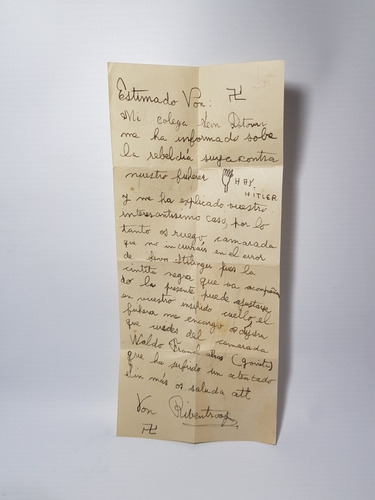 Estimado Von:
Mi colega Hern
me ha informado sobe
la rebeldía suya contra
nuestro fuhrer HAY,
HITLER
y me ha explicado vuestro
interesantisimo caso, por lo
tanto os ruego camarada
que no incurrais en el error
de pues la
cintita negra que va acompañan
do la presente puede ajustarse
en vuestro insipido cuello, el
fuhrer me encargo os dijera
que ustedes del camarada
Waldo Frank
que ha sufrido un atentado
sin más os saluda att
Von Ribentroop